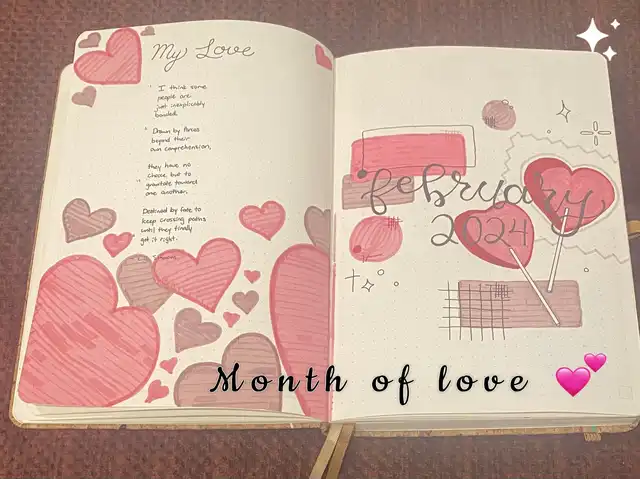 My Love
" I think some
people are
just inexplicably
bonded.
" Drawn by forces
beyond their
own comprehension,
they have no
choice but to
" gravitate toward
one another.
Destined by fate to
keep crossing paths
until they finally
get it right.
february
2024
Month of love 💕